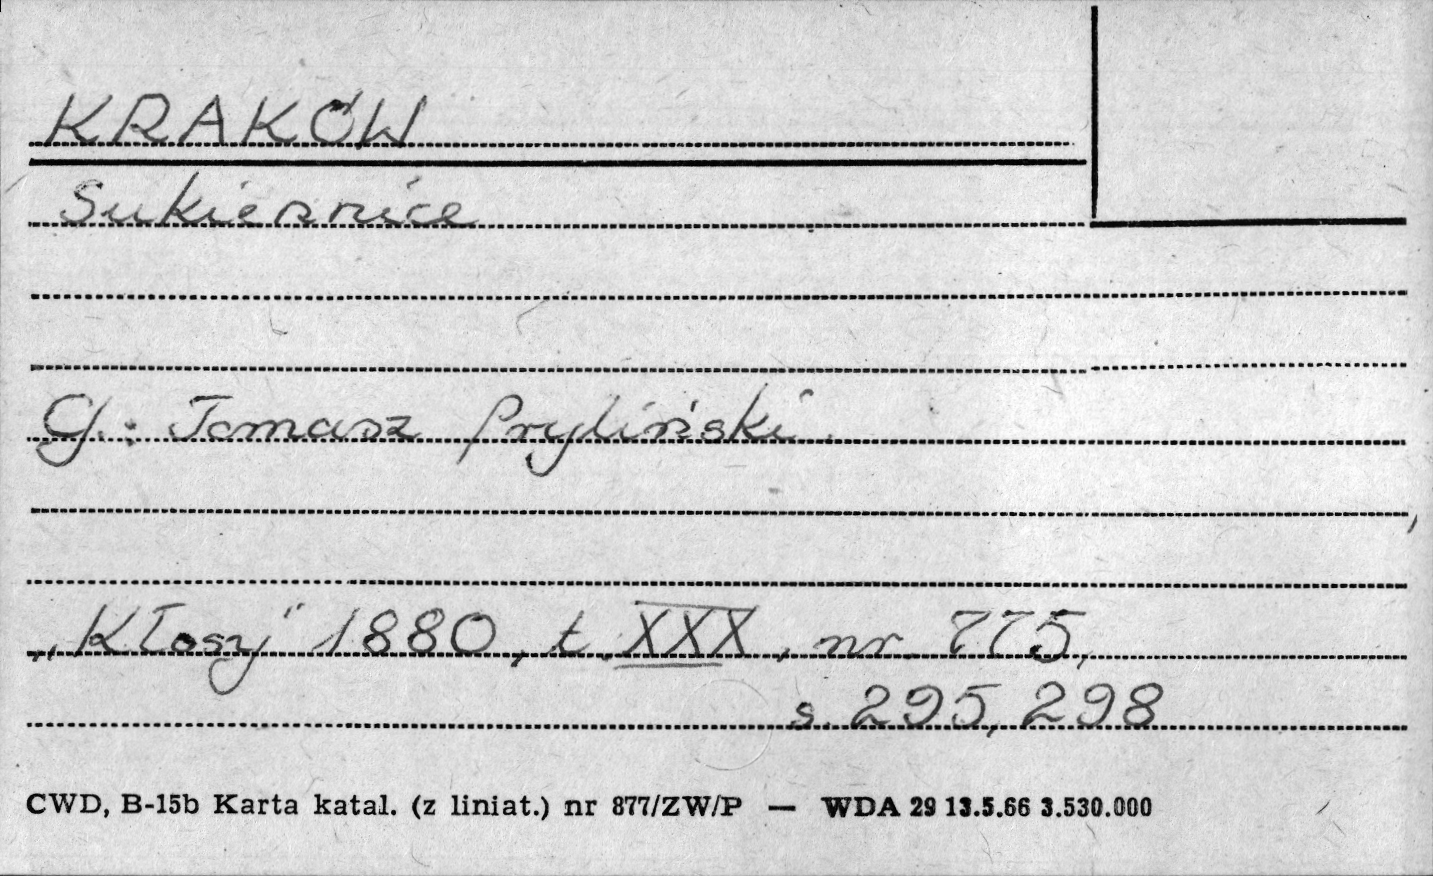 KRAKÓW
Sukiennice
G.: Tomasz Pryliński.
„Kłosy" 1880, t. XXX, nr. 775,
s. 295, 298
CWD, B-15b Karta katal. (z liniat.) nr 877/ZW/P — WDA 29 13.5.66 3.530.000